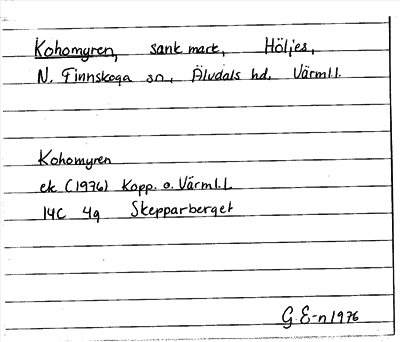 Kohomyren, sank mark, Höljes,
N. Finnskoga sn, Älvdals hd. Värml.l.
Kohomyren
ek (1976) Kopp. o. Värml.l
14C 4g Skepparberget
G. E-n 1976